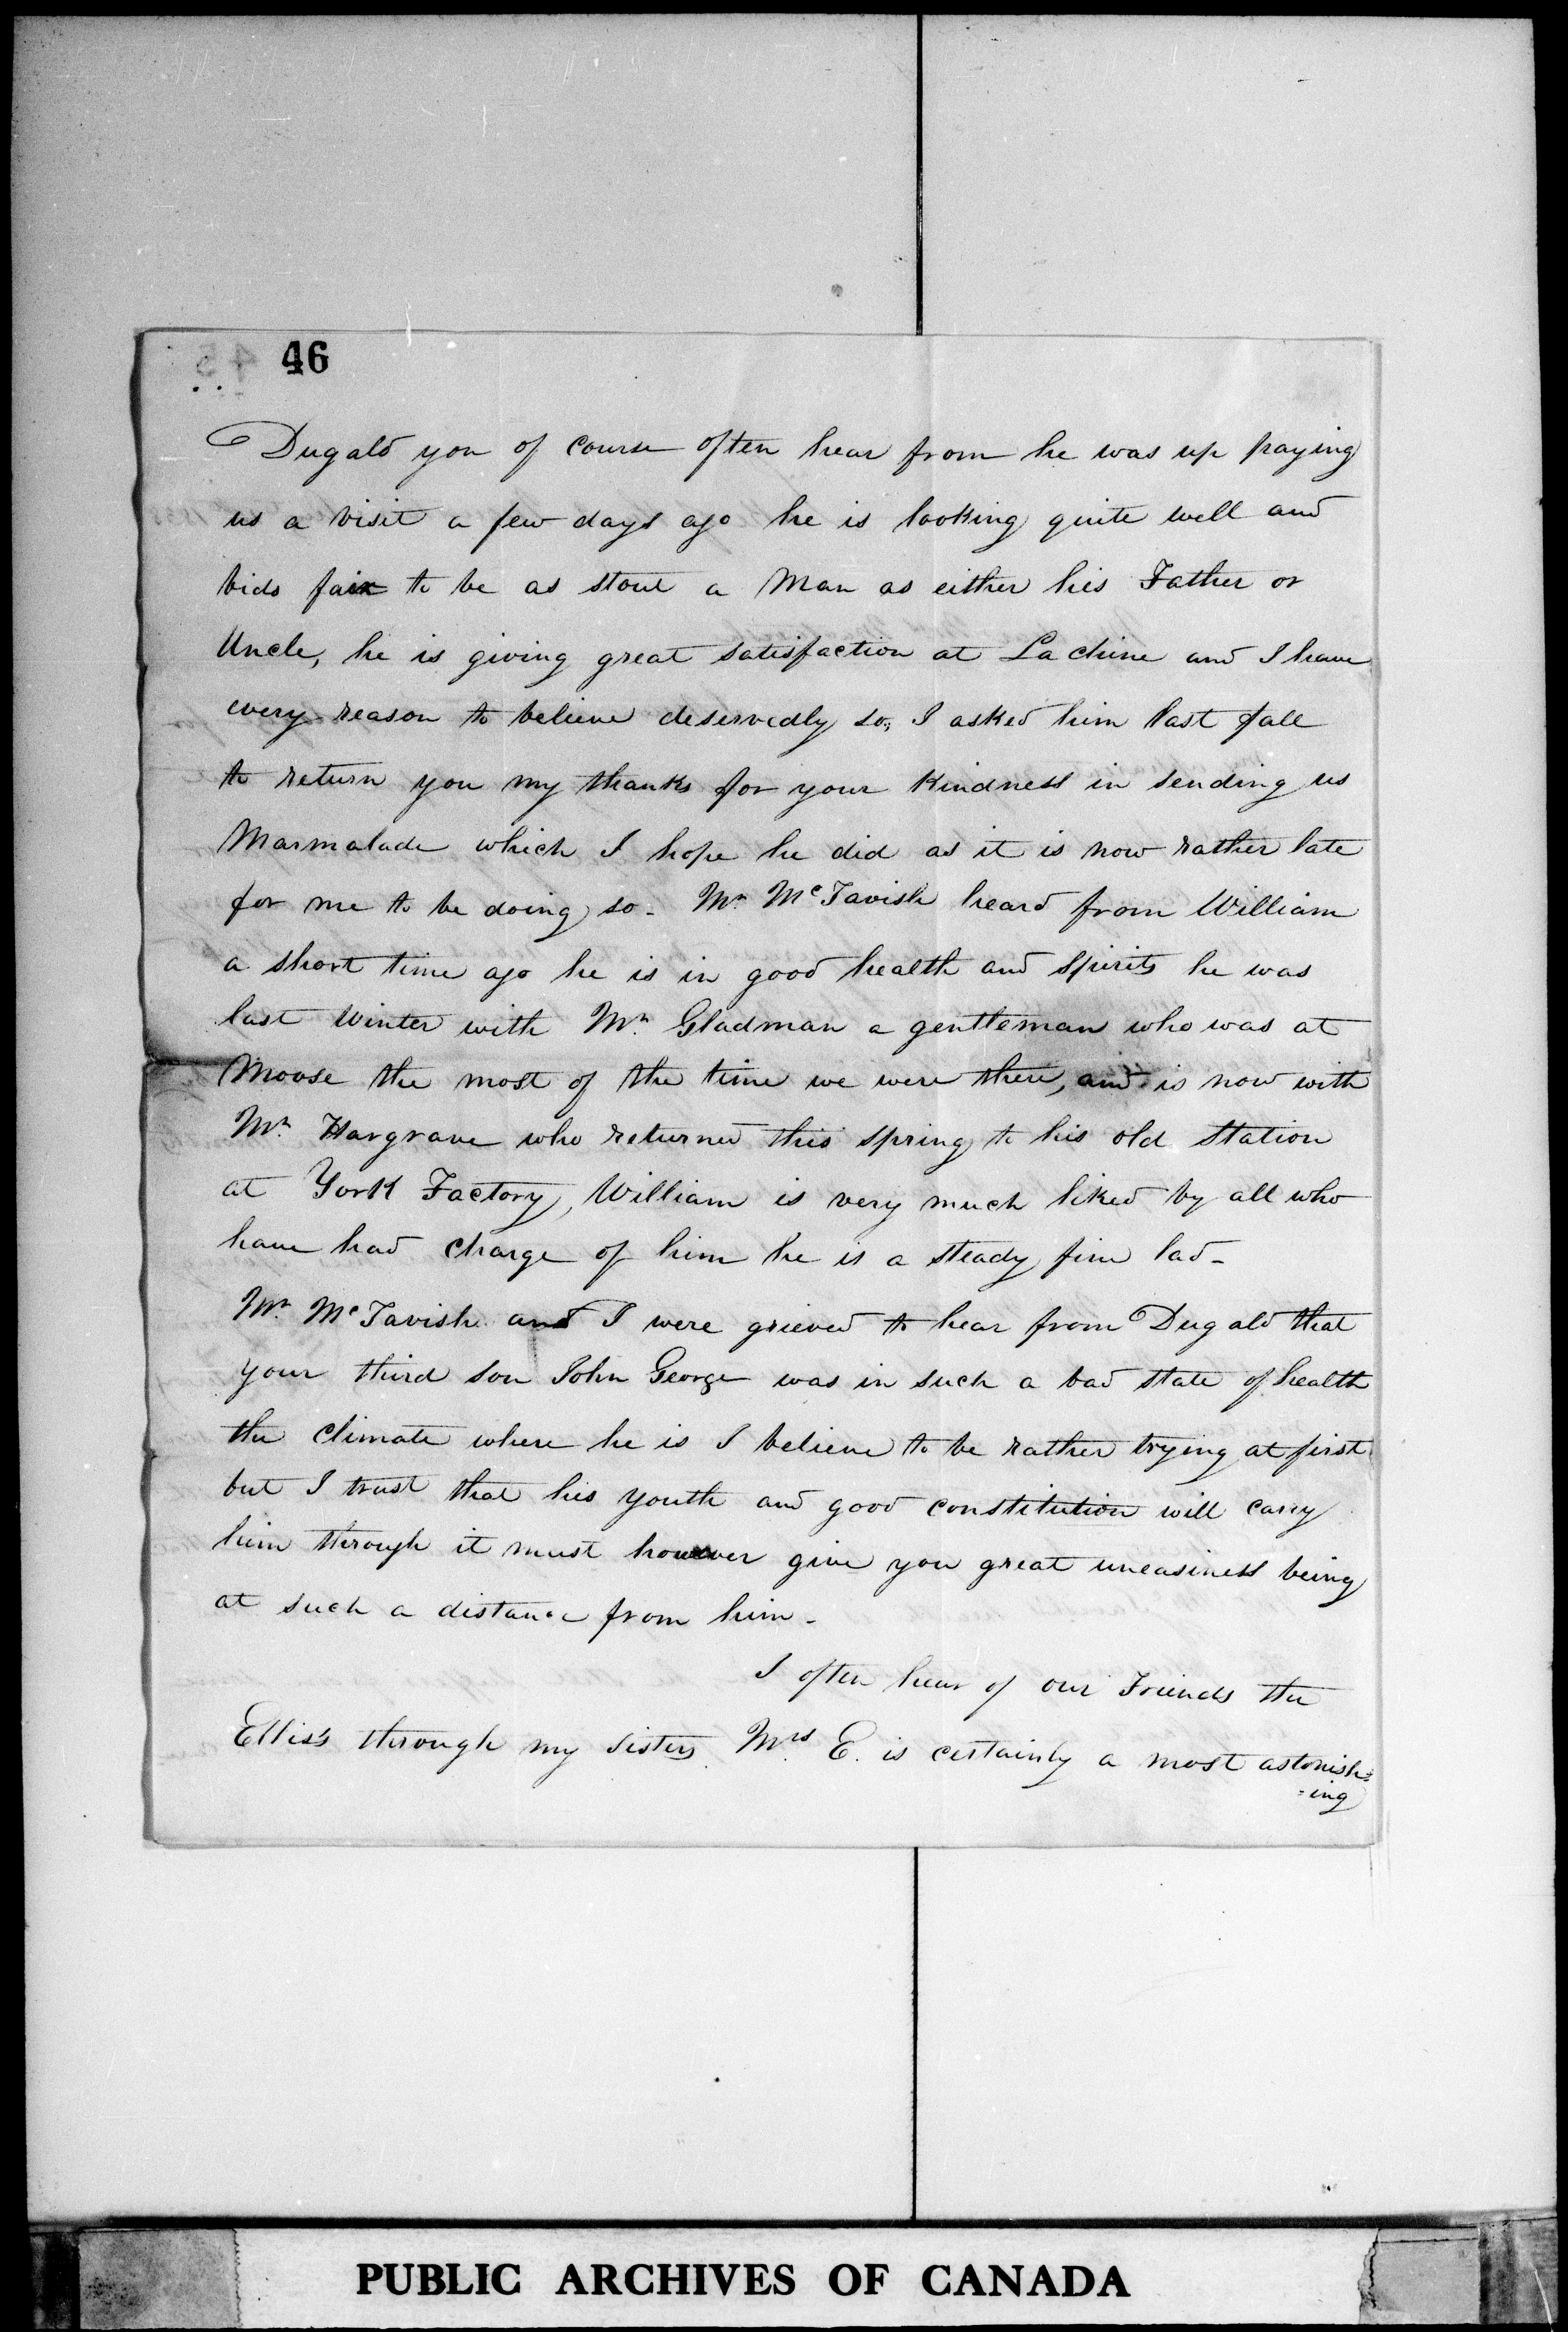 46
Dugald you of course often hear from he was up paying
us a visit a few days ago he is looking quite well and
bids fair to be as stout a Man as either his Father or
Uncle, he is giving great satisfaction at La chine and I have
every reason to believe deservedly so, I asked him last fall
to return you my thanks for your kindness in sending us
Marmalade which I hope he did as it is now rather late
for me to be doing so - Mr. McTavish heard from William
a short time ago he is in good health and spirits he was
last Winter with Mr. Gladman a gentleman who was at
Moose the most of the time we were there, and is now with
Mr. Hargrave who returned this spring to his old station
at York Factory, William is very much liked by all who
have had charge of him he is a steady fine lad -
Mr. McTavish and I were grieved to hear from Dugald that
your third son John George was in such a bad state of health
the climate where he is I believe to be rather trying at first
but I trust that his youth and good constitution will carry
him through it must however give you great uneasiness being
at such a distance from him -
I often hear of our Friends the
Ellis's through my sisters. Mrs. E. is certainly a most astonish=
=ing
PUBLIC ARCHIVES OF CANADA